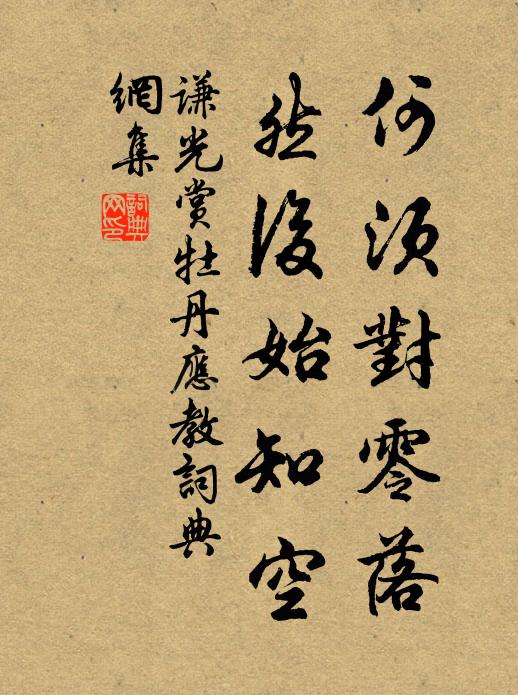 何須對零落
然後始知空
謙光賞牡丹應教詞典
網集
詞典
网印